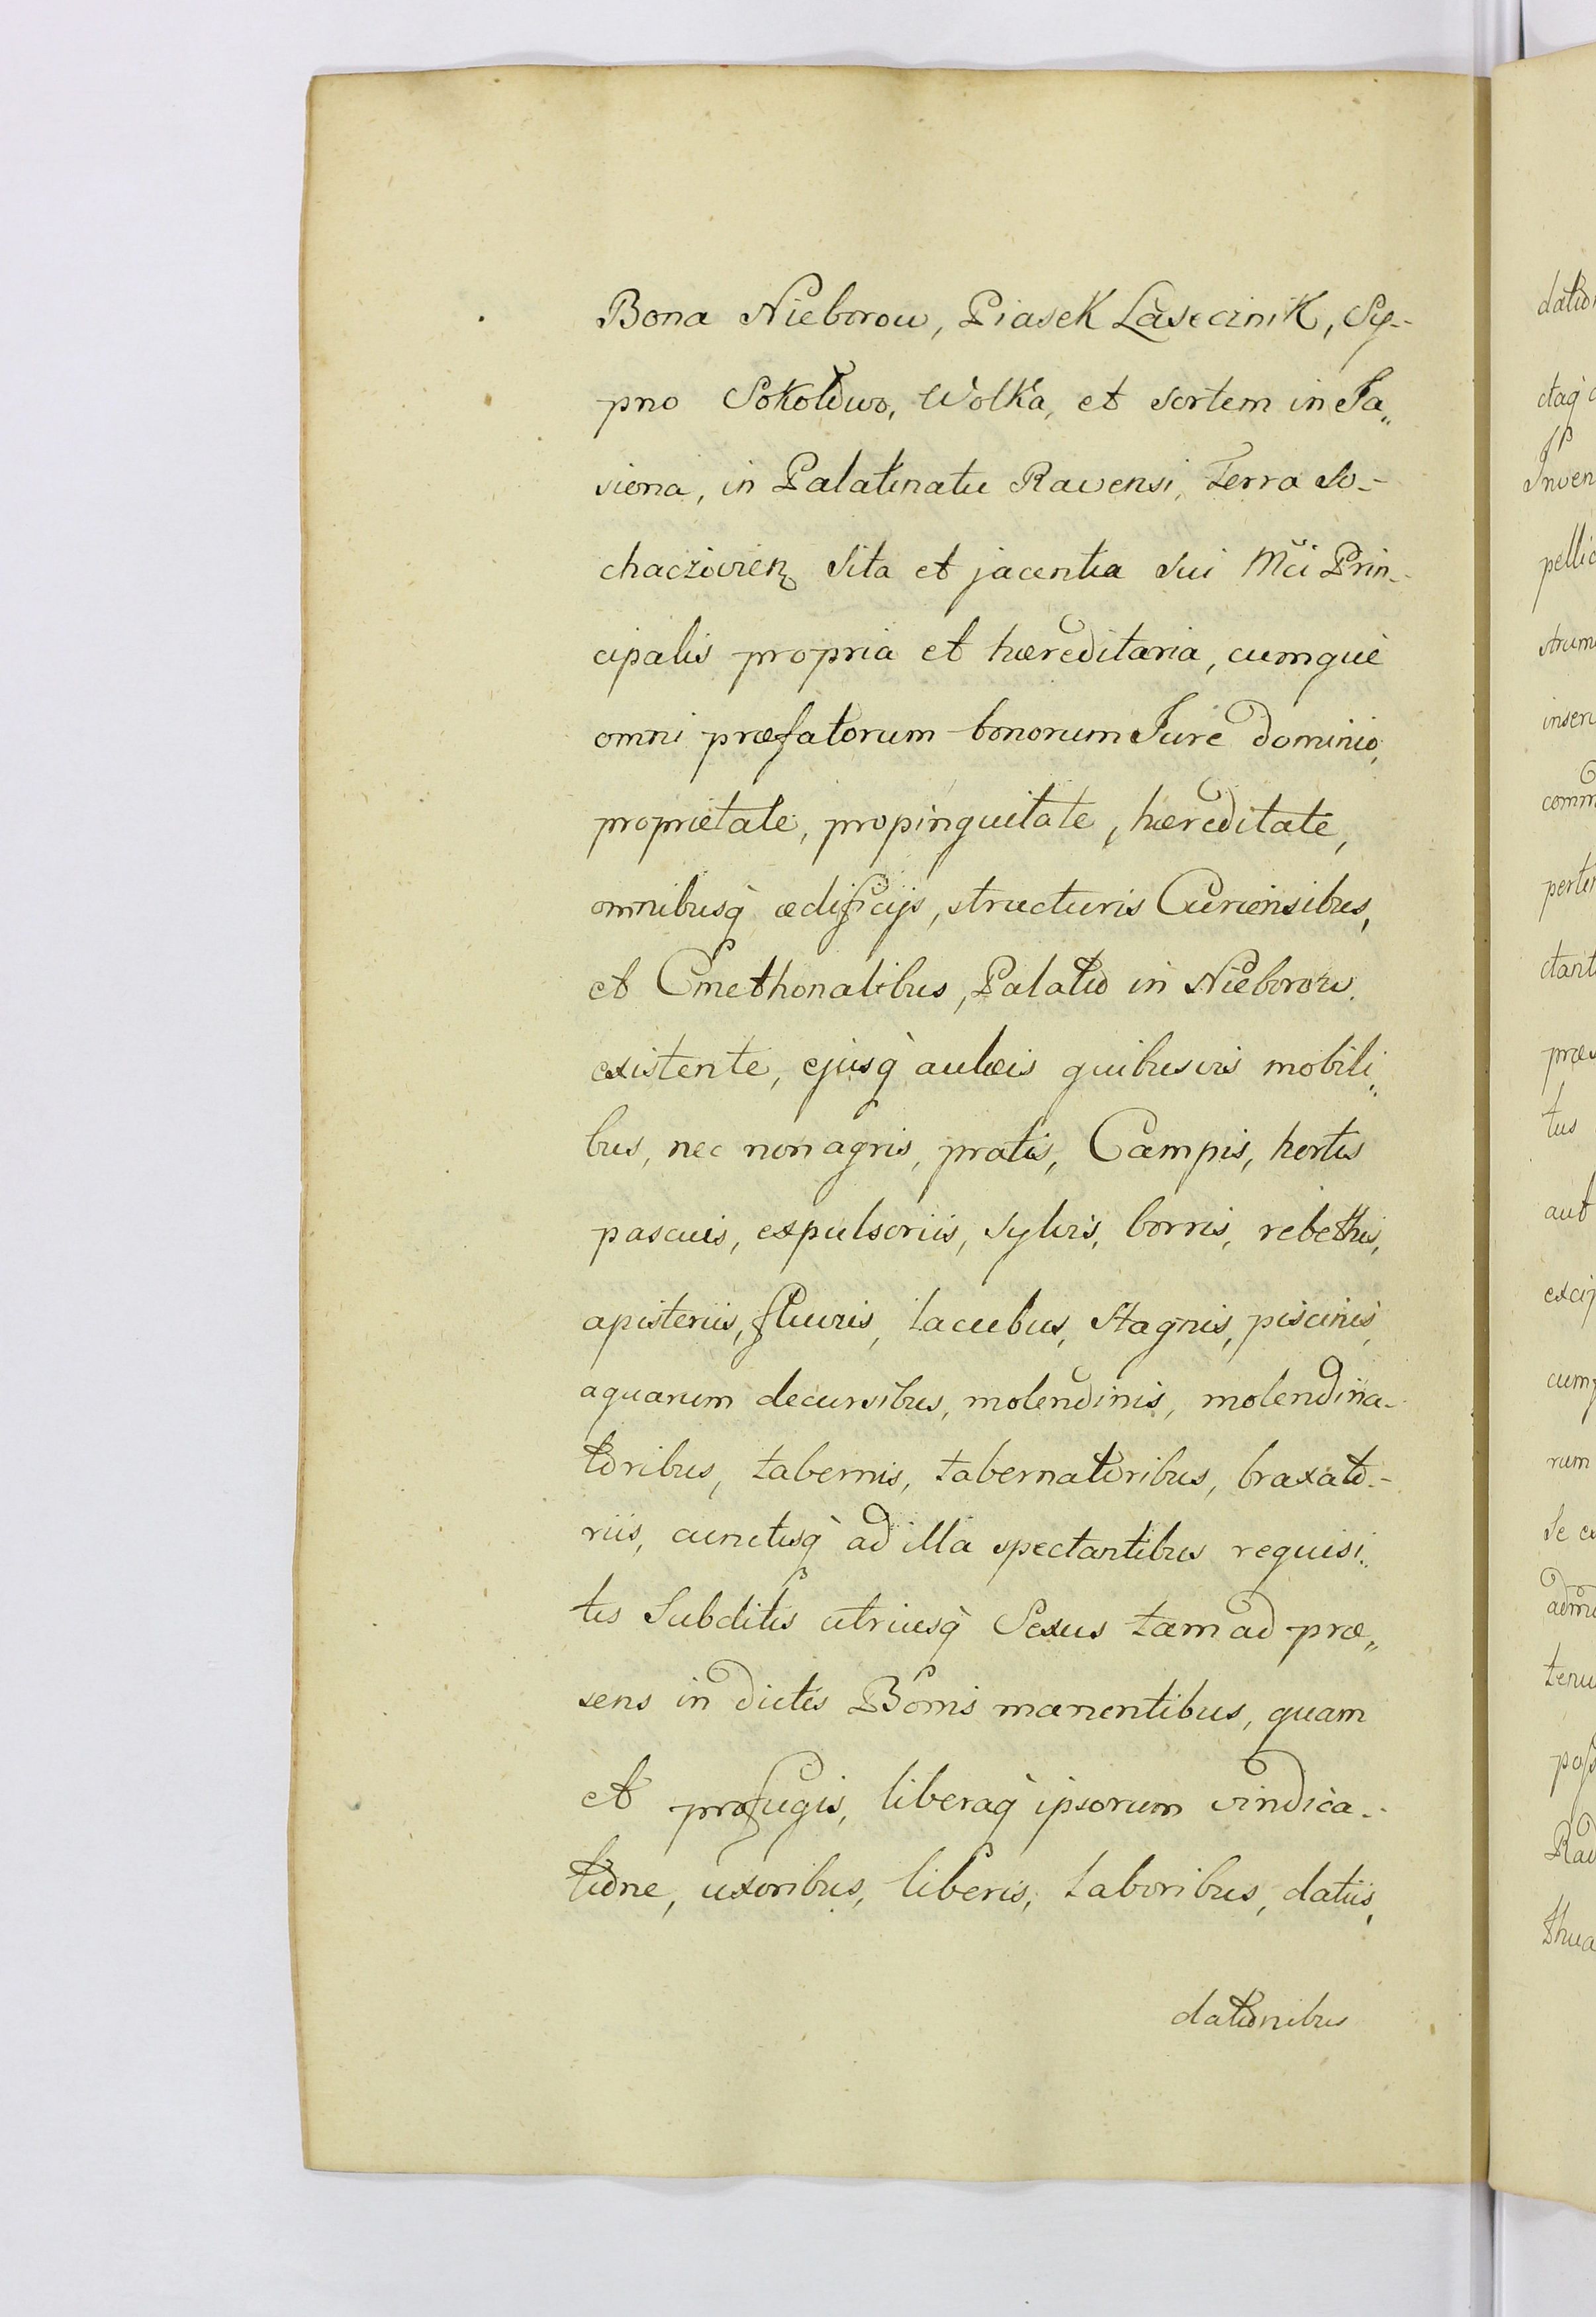 Bona Nieborow, Piasek Lasecznik, Sy-
pno Sokołowo, Wolka, et sortem in Ja„
siona, in Palatinatu Ravensi, Terra So-
chaczovien sita et jacentia sui Mci Prin-
cipalis propria et hæreditaria, cumque
omni præfatorum bonorum Jure dominio,
proprietate, propinquitate, hæreditate,
omnibusq̀ ædificijs, structuris Curiensibus,
et Cmethonalibus, Palatio in Nieborow
existente, ejusq̀ aulæis quibusvis mobili„
bus, nec non agris, pratis, Campis, hortis
pascuis, expulsoriis, sylvis, borris, rebethis,
apisteriis, fluviis, lacubus, stagnis, piscinis,
aquarum decursibus, molendinis, molendina-
toribus, tabernis, tabernatoribus, braxato-
riis, cunctisq̀ ad illa spectantibus requisi„
tis Subditis utriusq̀ Sexus tam ad præ„
sens in dictis Bonis manentibus, quam
et profugis, liberaq̀ ipsorum vindica-
tione, uxoribus, liberis, laboribus, datiis,
dationibus